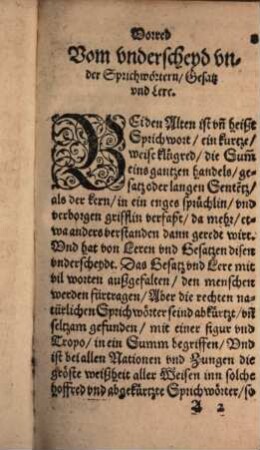 Vorred
Vom vnderscheyd vn-
der Sprichwörtern/ Gesatz
vnd Lere.
BEiden Alten ist vñ heißt
Sprichwort/ ein kurtze/
weise klůgred/ die Sum̃
eins gantzen handels/ ge-
satz oder langen Sentẽtz/
als der kern/ in ein enges sprüchlin/ vnd
verborgen grifflin verfaßt/ da mehr/ et-
wa anders verstanden dann geredt wirt.
Vnd hat von Leren vnd Gesatzen disen
vnderscheydt. Das Gesatz vnd Lere mit
vil worten außgefalten/ den menschen
werden fürtragen/ Aber die rechten na-
türlichen Sprichwörter seind abkürtzt/ vñ
seltzam gefunden/ mit einer figur vnd
Tropo/ in ein Summ begriffen/ Vnd
ist bei allen Nationen vnd Zungen die
gröste weißheit aller Weisen inn solche
hoffred vnd abgekürtzte Sprichwörter/ so
A 2